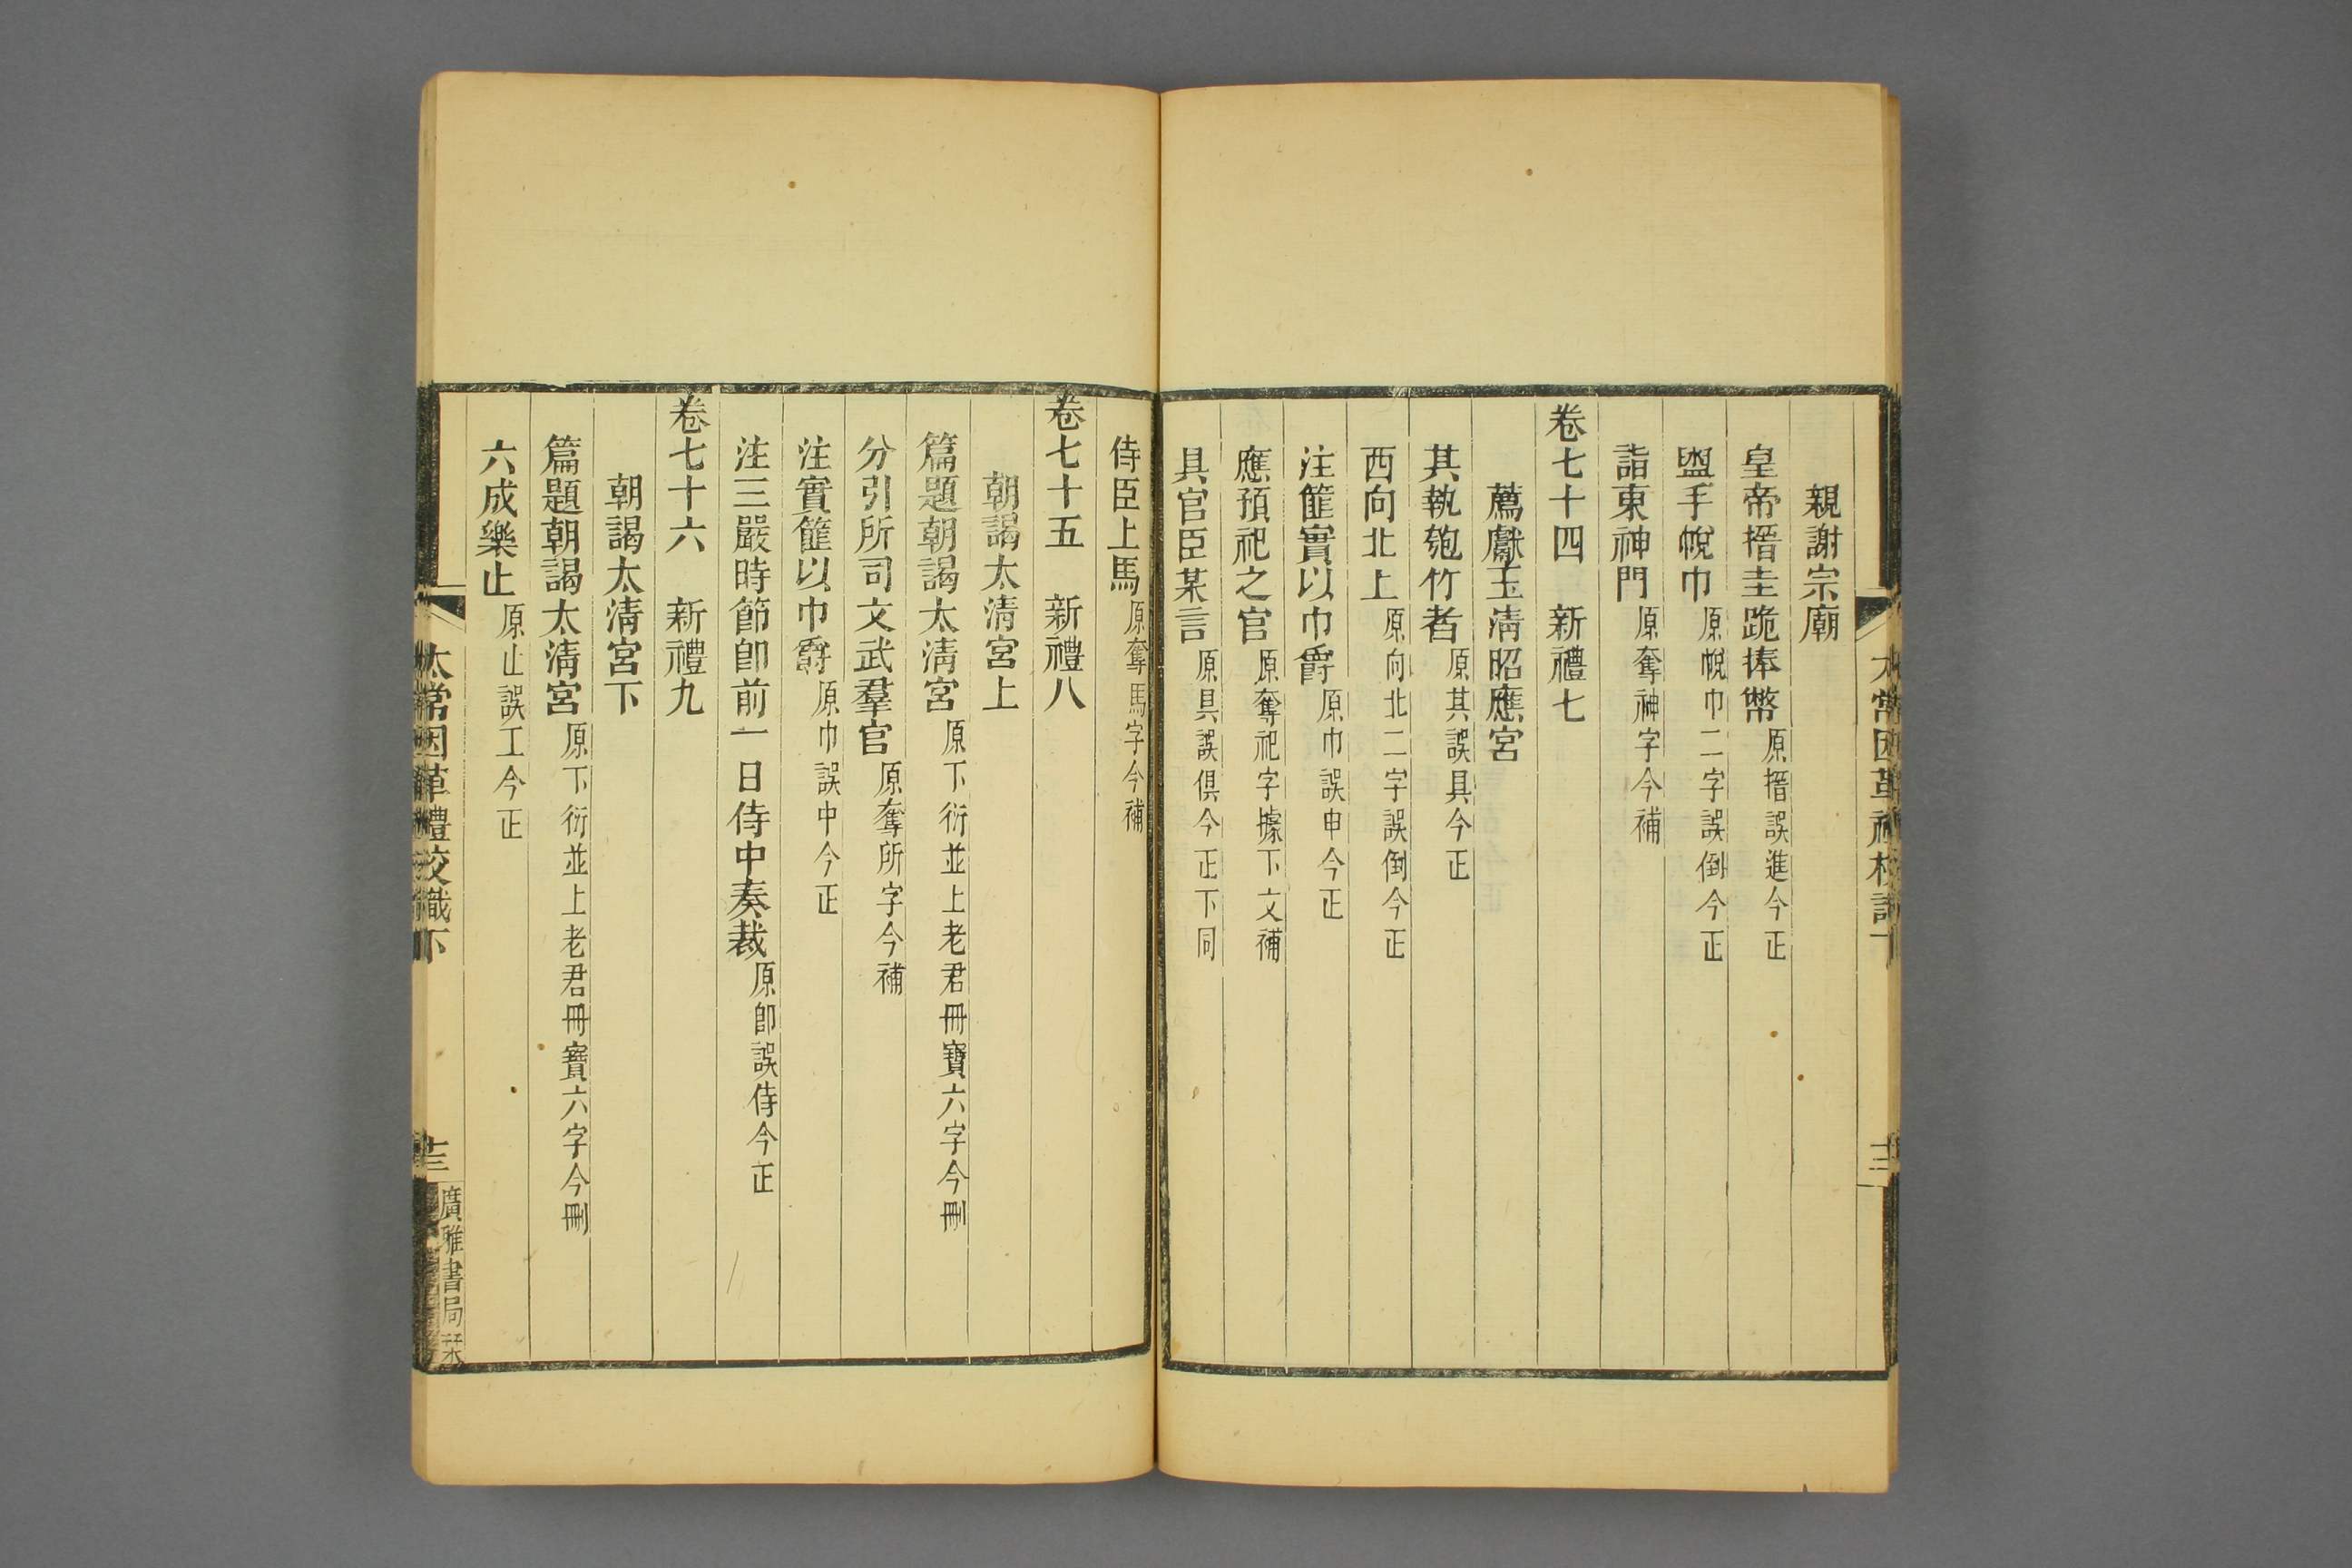 親謝宗廟
皇帝搢圭跪捧幣原搢誤進今正
盥手帨巾原帨巾二字誤倒今正
詣東神門原奪神字今補
卷七十四　新禮七
薦獻玉淸昭應宮
其執匏竹者原其誤具今正
西向北上原向北二字誤倒今正
注篚實以巾爵原巾誤申今正
應預祀之官原奪祀字據下文補
具官臣某言原具誤俱今正下同
侍臣上馬原奪馬字今補
卷七十五　新禮八
朝謁太淸宮上
篇題朝謁太淸宮原下衍並上老君冊寶六字今刪
分引所司文武羣官原奪所字今補
注實篚以巾爵原巾誤中今正
注三嚴時節卽前一日侍中奏裁原卽誤侍今正
卷七十六　新禮九
朝謁太淸宮下
篇題朝謁太淸宮原下衍並上老君冊寶六字今刪
六成樂止原止誤工今正
太常因革禮校識下
十三
廣雅書局栞